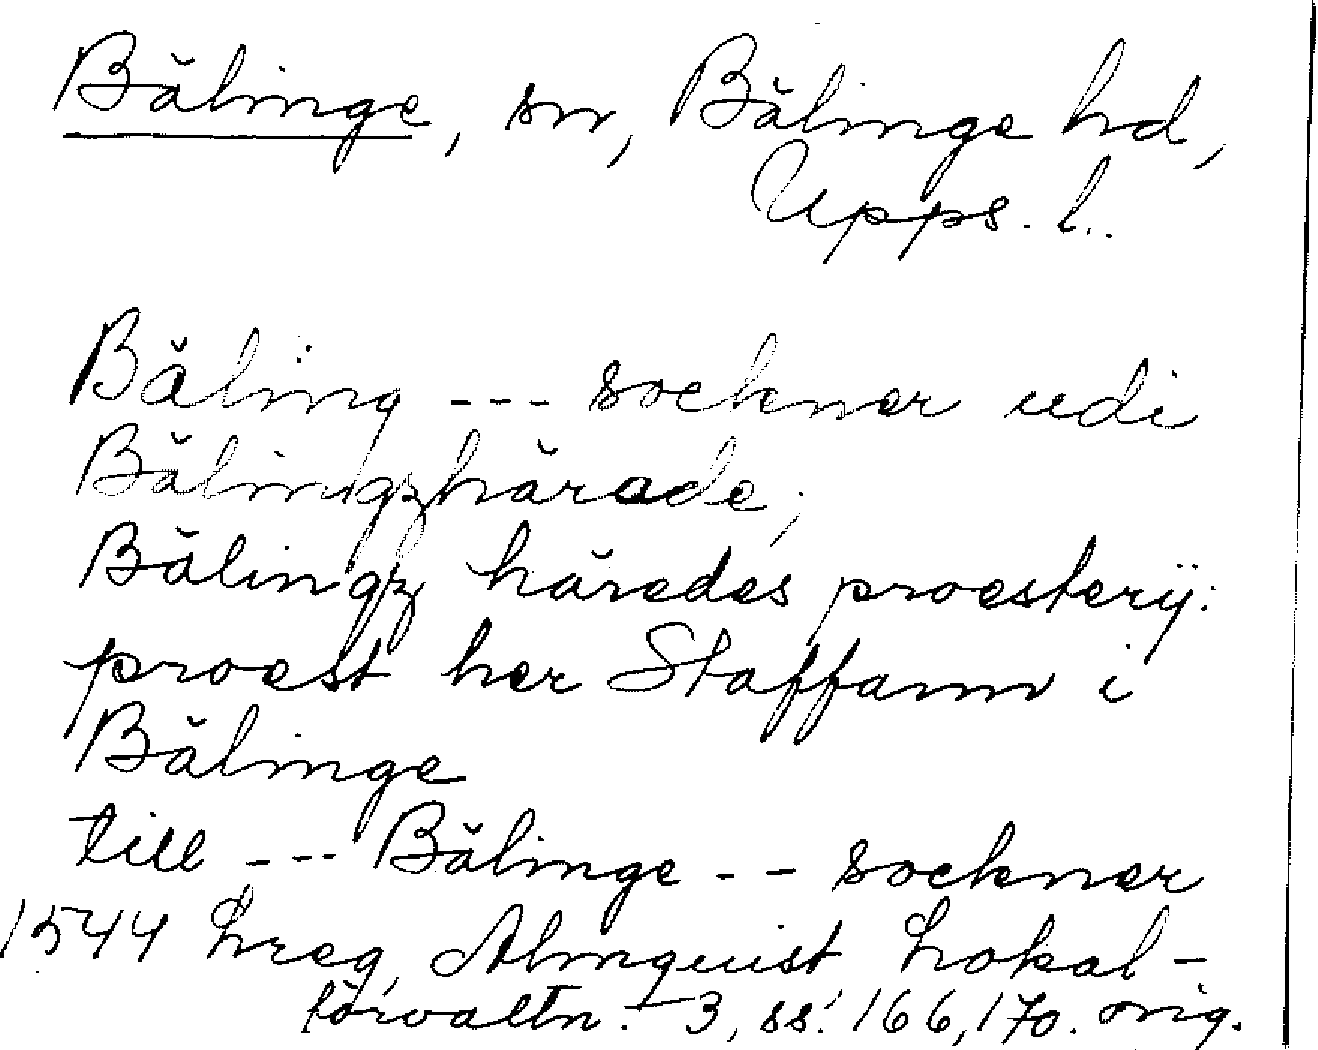 Bälinge, sn, Bälinge hd,
Upps. l.
Bäling --- socknar udi
Bälingzhärade;
Bälingz häredes proesterij:
proest her Staffann i
Bälinge
till --- Bälinge -- socknar
1544 Lreg, Almquist Lokal-
förvaltn. 3, ss. 166, 170. orig.